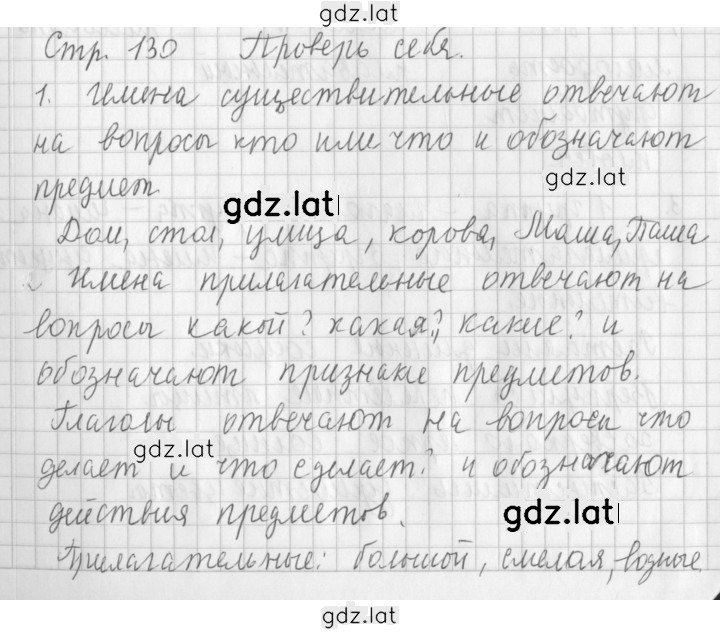 gdz.lat
Стр. 130 Проверь себя.
1. Имена существительные отвечают
на вопросы кто или что и обозначают
предмет.
gdz.lat
gdz.lat
Дом, стол, улица, корова, Маша, Паша
Имена прилагательные отвечают на
вопросы какой? какая?, какие? и
обозначают признаки предметов.
Глаголы отвечают на вопросы что
gdz.lat
делает и что сделает? и обозначают
действия предметов.
gdz.lat
Прилагательные: большой, смелая, водные.
gdz.lat